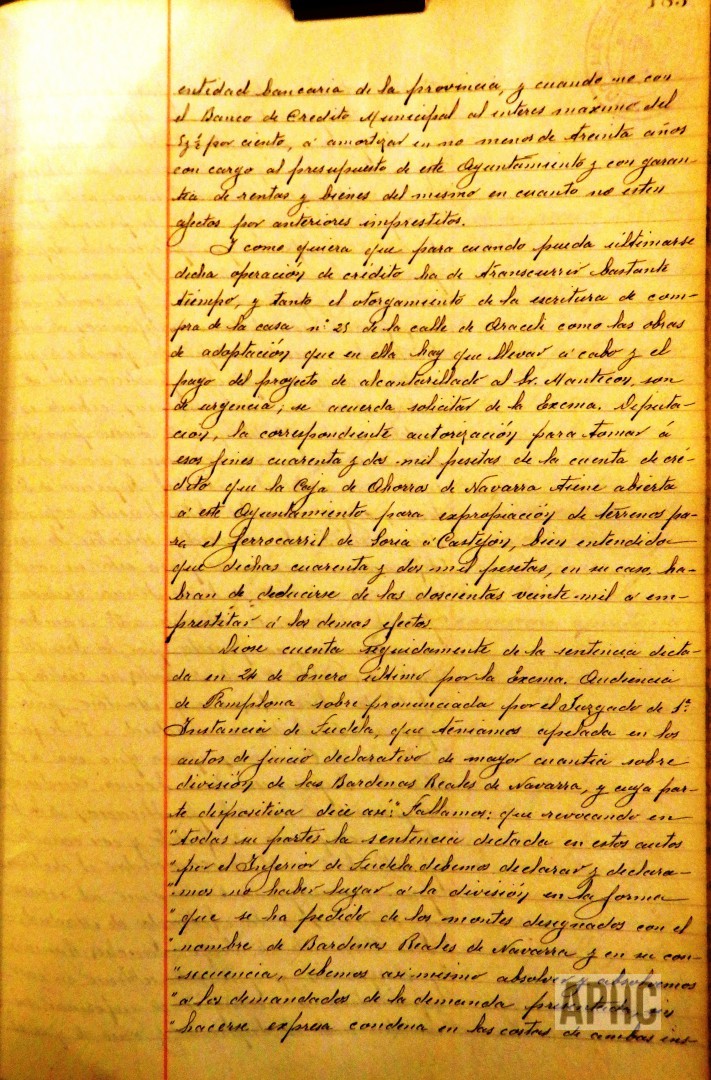 185
entidad bancaria de la provincia, y cuando no con
el Banco de Credito Municipal al interes máximo del
5½ por ciento, á amortizar en no menos de treinta años
con cargo al presupuesto de este Ayuntamiento y con garan-
tia de rentas y bienes del mismo en cuanto no esten
afectos por anteriores imprestitos.
Y como quiera que para cuando pueda ultimarse
dicha operación de crédito ha de transcurrir bastante
tiempo, y tanto el otorgamiento de la escritura de com-
pra de la casa nº 25 de la calle de Araceli como las obras
de adoptación que en ella hay que llevar á cabo y el
pago del proyecto de alcantarillado al Sr. Mantecon, son
de urgencia; se acuerda solicitar de la Excma. Diputa-
cion, la correspondiente autorización para tomar á
esos fines cuarenta y dos mil pesetas de la cuenta de cré-
dito que la Caja de Ahorros de Navarra tiene abierta
á este Ayuntamiento para expropiación de terrenos pa-
ra el ferrocarril de Soria á Castejon, bien entendido
que dichas cuarenta y dos mil pesetas, en su caso, ha-
bran de deducirse de las doscientas veinte mil á em-
prestitar á los demas efectos.
Diose cuenta seguidamente de la sentencia dicta-
da en 24 de Enero último por la Excma. Audiencia
de Pamplona sobre pronunciada por el Juzgado de 1ª
Instancia de Tudela, que teniamos apelada en los
autos de juicio declarativo de mayor cuantia sobre
división de las Bardenas Reales de Navarra, y cuya par-
te dispositiva dice asi: "Fallamos: que revocando en
" todas su partes la sentencia dictada en estos autos
" por el Inferior de Tudela debemos declarar y declara-
" mos no haber lugar á la división en la forma
" que se ha pedido de los montes designados con el
" nombre de Bardenas Reales de Navarra y en su con-
" secuencia, debemos asi mismo absolver y absolvemos
" á los demandados de la demanda presentada, sin
" hacerse expresa condena en las costas de ambas ins-
APHC